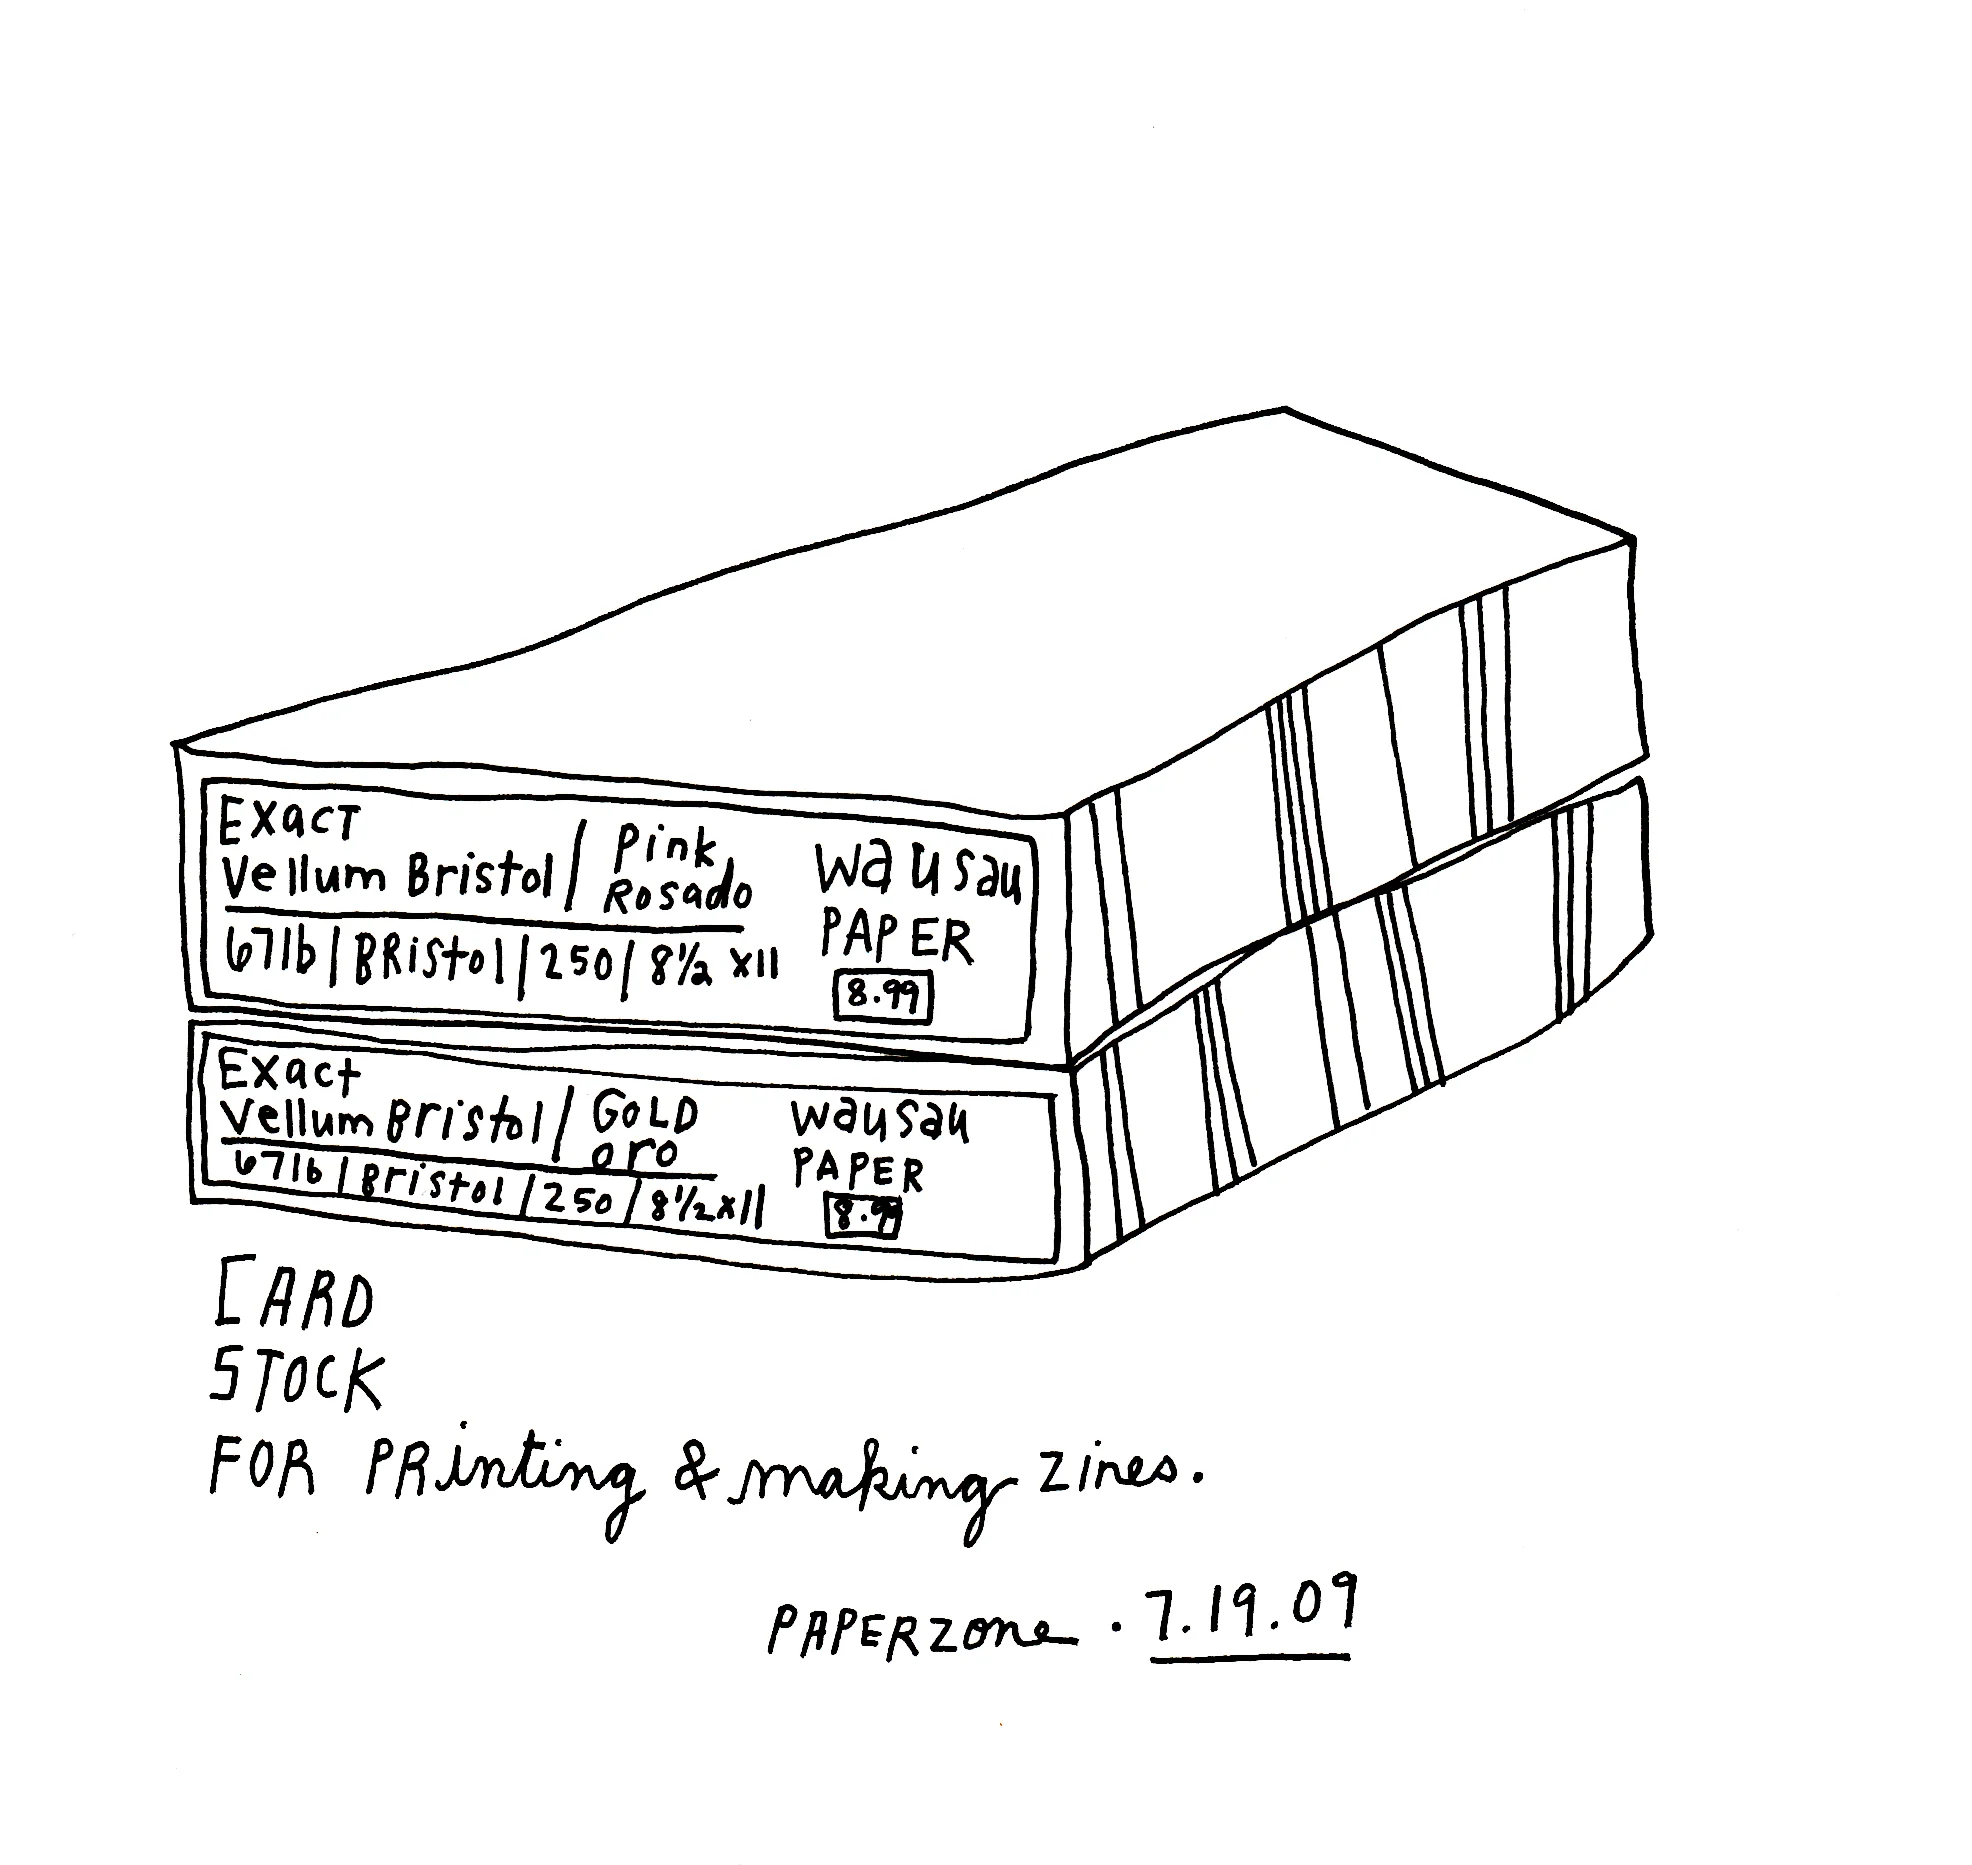 Exact
Vellum Bristol / Pink
Rosado
67lb | BRistol | 250 | 8½ x11
Wausau
PAPER
8.99
Exact
Vellum Bristol / GoLD
oro
67lb | Bristol | 250 | 8½x11
Wausau
PAPER
8.99
CARD
STOCK
FOR PRinting & making zines.
PAPERZone · 7.19.09